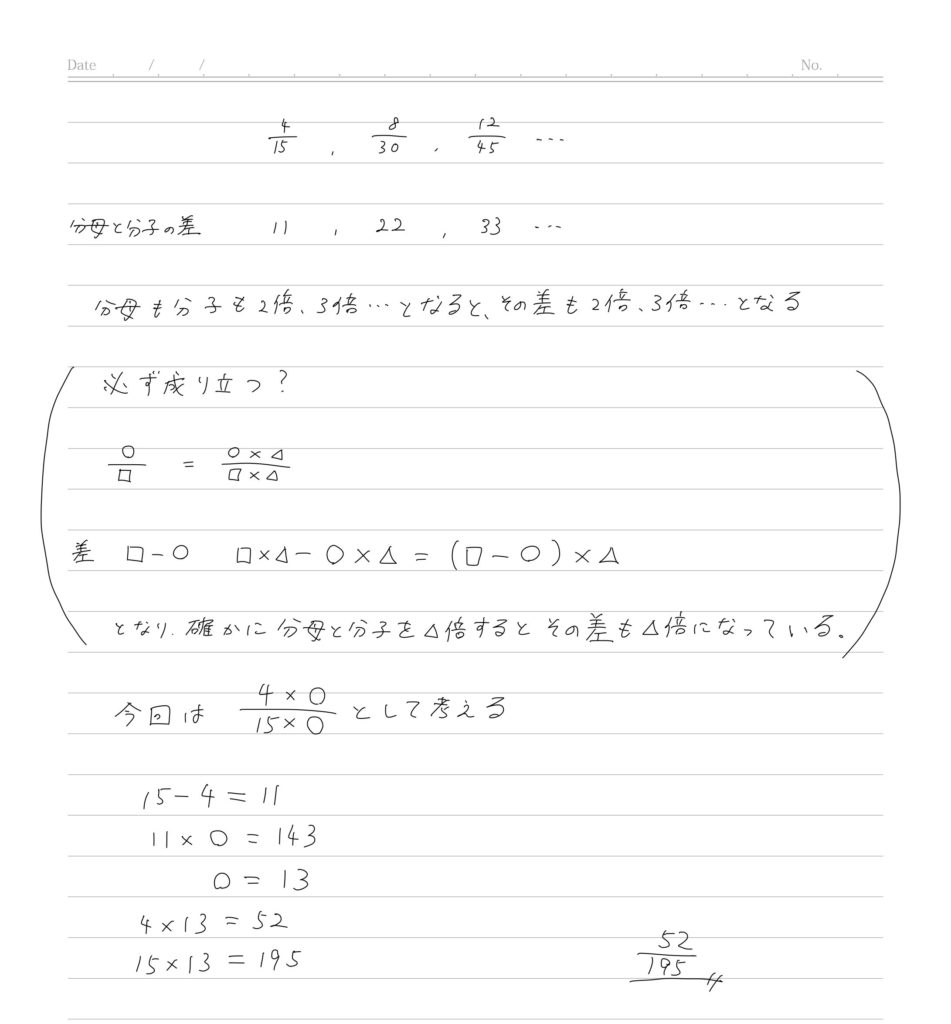 Date / / No.
4/15 , 8/30 , 12/45 ...
分母と分子の差 11 , 22 , 33 ...
分母も分子も2倍、3倍…となると、その差も2倍、3倍…となる
必ず成り立つ?
○/□ = ○×△/□×△
差 □-○ □×△-○×△=(□-○)×△
となり、確かに分母と分子を△倍するとその差も△倍になっている。
今回は 4×○/15×○ として考える
15-4=11
11×○=143
○=13
4×13=52
15×13=195
52/195